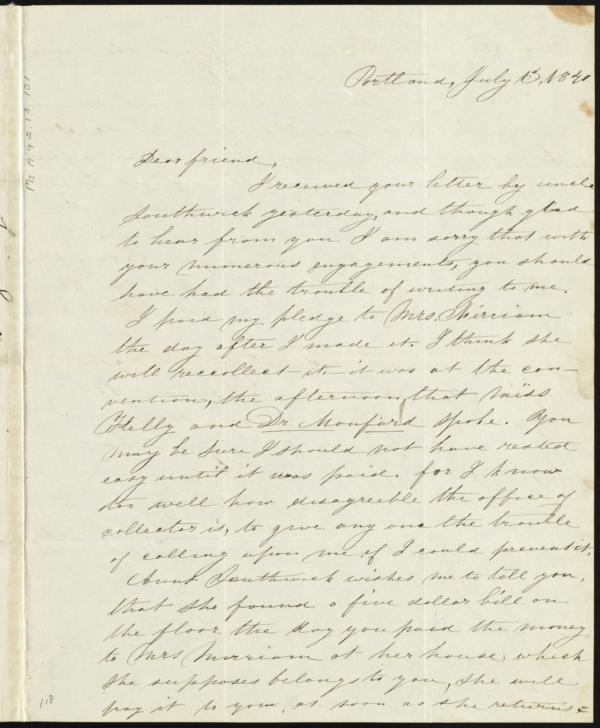 Portland, July 13, 1840
Dear friend,
I received your letter by uncle
Southwick yesterday, and though glad
to hear from you I am sorry that with
your numerous engagements, you should
have had the trouble of writing to me.
I paid my pledge to Mrs. Mirriam
the day after I made it. I think she
will reccollect it it was at the con-
vention, the afternoon, that miss
Kelly and Dr Monford spoke. You
may be sure I should not have rested
easy until it was paid. for I know
too well how disagreeble the office of
collector is, to give any one the trouble
of calling upon me, if I could prevent it.
Aunt Southwick wishes me to tell you,
that she found a five dollar bill on
the floor the day you paid the money
to Mrs Mirriam at her house, which
she supposes belongs to you, she will
pay it to you, as soon as she returns=
Ms. A. 9. 2. 13. 101
112